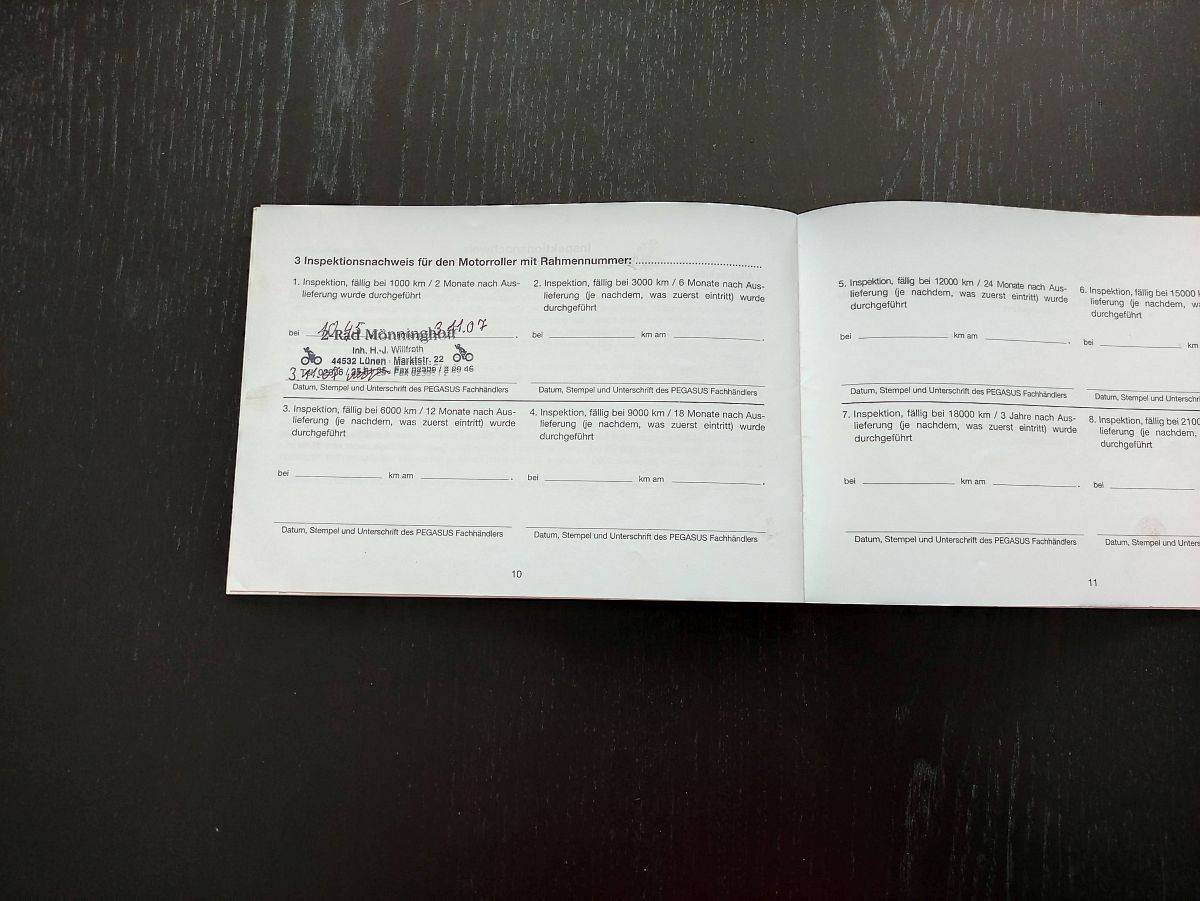 3 Inspektionsnachweis für den Motorroller mit Rahmennummer: ......................................
1. Inspektion, fällig bei 1000 km / 2 Monate nach Aus-
lieferung wurde durchgeführt
bei 3.11.07
2-Rad Mönninghoff
Inh. H.-J. Willfroth
44532 Lünen · Marktstr. 22
Datum, Stempel und Unterschrift des PEGASUS Fachhändlers
2. Inspektion, fällig bei 3000 km / 6 Monate nach Aus-
lieferung (je nachdem, was zuerst eintritt) wurde
durchgeführt
bei ____________ km am ____________ .
Datum, Stempel und Unterschrift des PEGASUS Fachhändlers
3. Inspektion, fällig bei 6000 km / 12 Monate nach Aus-
lieferung (je nachdem, was zuerst eintritt) wurde
durchgeführt
bei ____________ km am ____________ .
Datum, Stempel und Unterschrift des PEGASUS Fachhändlers
4. Inspektion, fällig bei 9000 km / 18 Monate nach Aus-
lieferung (je nachdem, was zuerst eintritt) wurde
durchgeführt
bei ____________ km am ____________ .
Datum, Stempel und Unterschrift des PEGASUS Fachhändlers
10
5. Inspektion, fällig bei 12000 km / 24 Monate nach Aus-
lieferung (je nachdem, was zuerst eintritt) wurde
durchgeführt
bei ____________ km am ____________ .
Datum, Stempel und Unterschrift des PEGASUS Fachhändlers
6. Inspektion, fällig bei 15000
lieferung (je nachdem, w
durchgeführt
bei ____________ km
Datum, Stempel und Unterschri
7. Inspektion, fällig bei 18000 km / 3 Jahre nach Aus-
lieferung (je nachdem, was zuerst eintritt) wurde
durchgeführt
bei ____________ km am ____________ .
Datum, Stempel und Unterschrift des PEGASUS Fachhändlers
8. Inspektion, fällig bei 2100
lieferung (je nachdem,
durchgeführt
bei ____________
Datum, Stempel und Unters
11